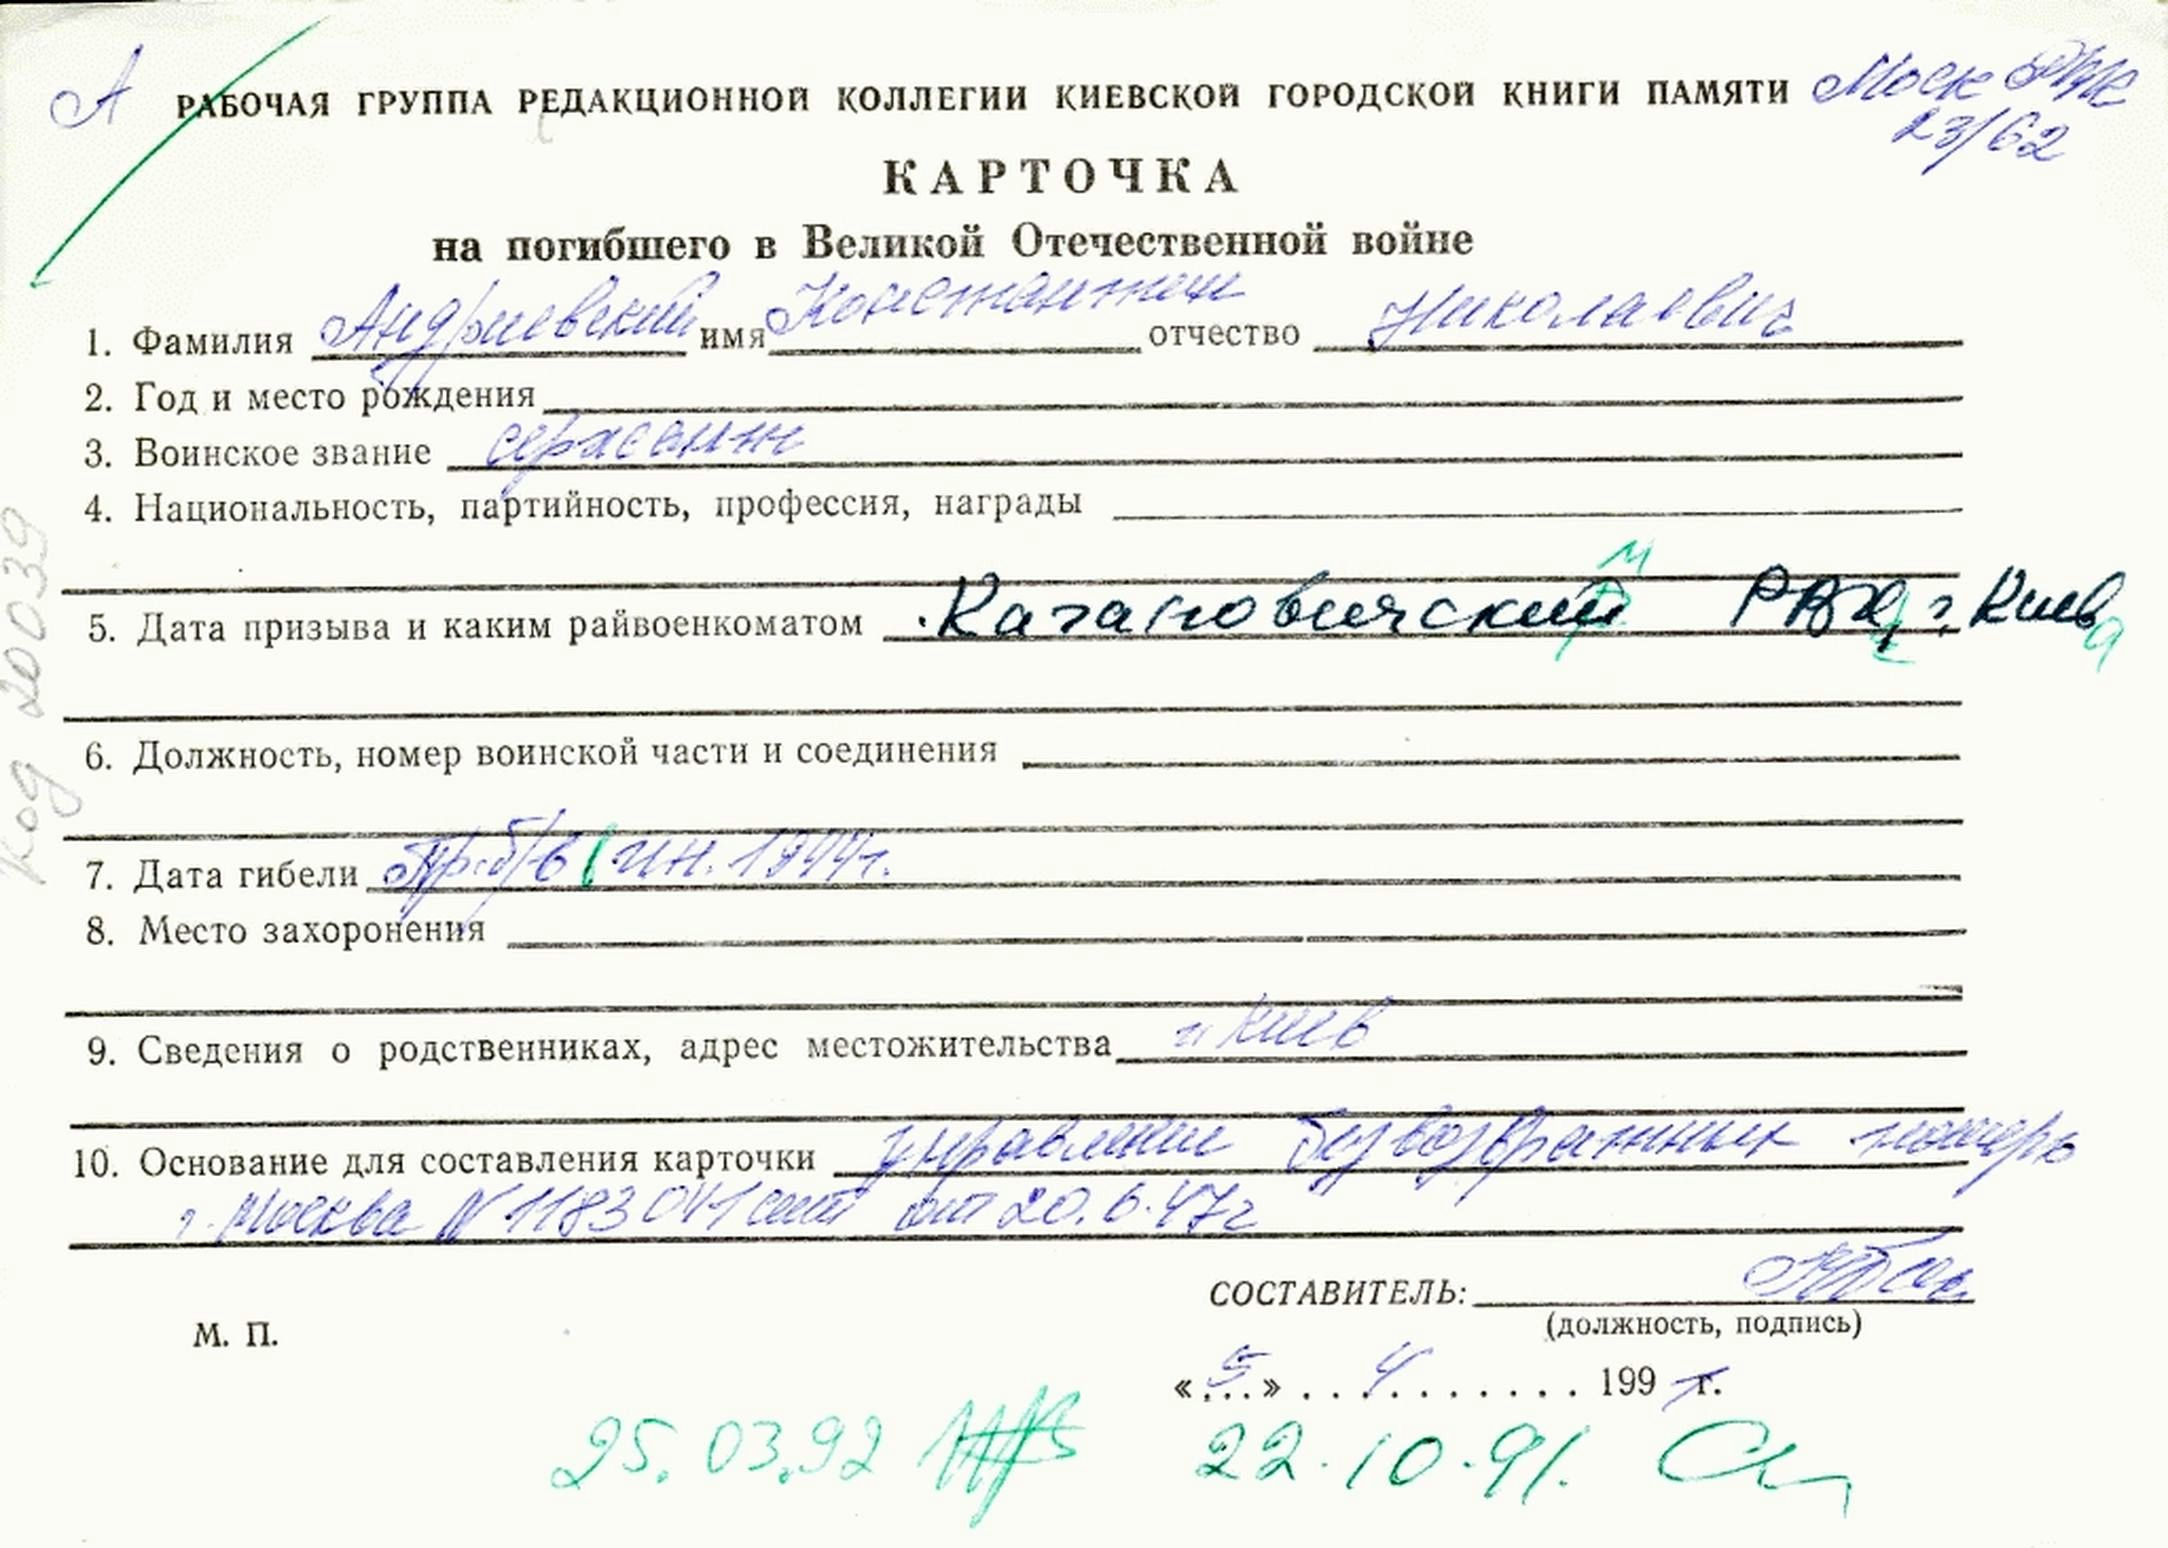 А РАБОЧАЯ ГРУППА РЕДАКЦИОННОЙ КОЛЛЕГИИ КИЕВСКОЙ ГОРОДСКОЙ КНИГИ ПАМЯТИ Моск
23/62
КАРТОЧКА
на погибшего в Великой Отечественной войне
1. Фамилия Андриевский имя Константин отчество Николаевич
2. Год и место рождения
3. Воинское звание сержант
4. Национальность, партийность, профессия, награды
5. Дата призыва и каким райвоенкоматом Кагановический м РВК, г. Киева
6. Должность, номер воинской части и соединения
7. Дата гибели Пр. б/в ин. 1944г.
8. Место захоронения
9. Сведения о родственниках, адрес местожительства г. Киев
10. Основание для составления карточки управление безвозвратных потерь
г. Москва N 1183 от 20.6.47г
СОСТАВИТЕЛЬ:
(должность, подпись)
М. П.
«5» 4 199 г.
25.03.92 22.10.91.
код 20039